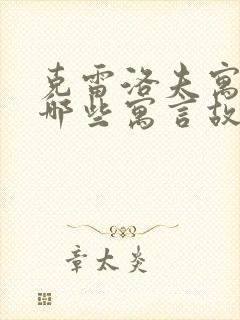 克雷洛夫寓
那些寓言故
章太炎